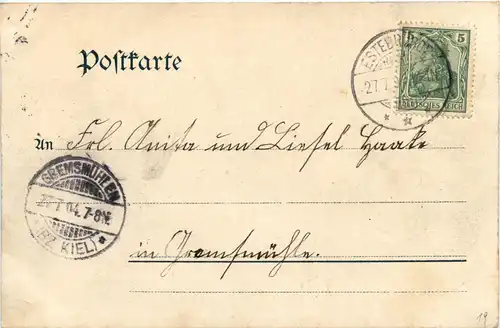 Postkarte
5 5
DEUTSCHES REICH
27.7.
An Frl. Anita und Liesel Haake
GREMSMÜHLEN
27.7.04. 7-8N
(BZ. KIEL)
in Gremsmühle.
19